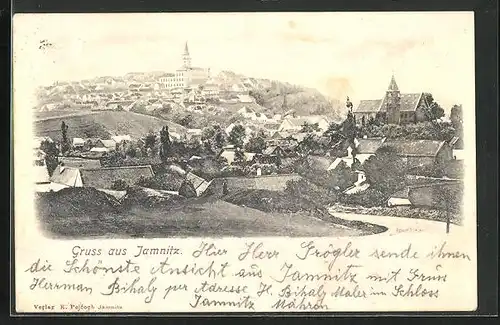 Gruss aus Jamnitz. Hier Herr Frögler sende ihnen
die Schönste Ansicht aus Jamnitz mit Grüs
Herrman Bihaly per Adresse H. Bihaly Maler im Schloss
Jamnitz Mähren
Verlag R. Jamnitz